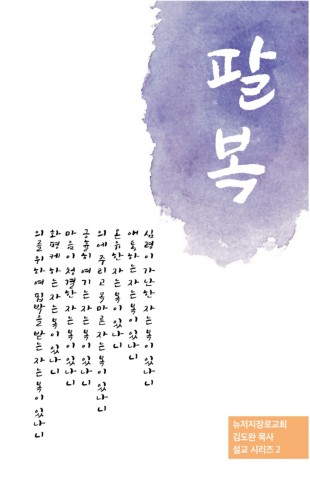 팔복
심령이 가난한 자는 복이 있나니
애통하는 자는 복이 있나니
온유한 자는 복이 있나니
의에 주리고 목마르자는 복이 있나니
긍휼히 여기는 자는 복이 있나니
마음이 청결한 자는 복이 있나니
화평케 하는 자는 복이 있나니
의를 위하여 핍박을 받는 자는 복이 있나니
뉴저지장로교회
김도완 목사
설교 시리즈 2